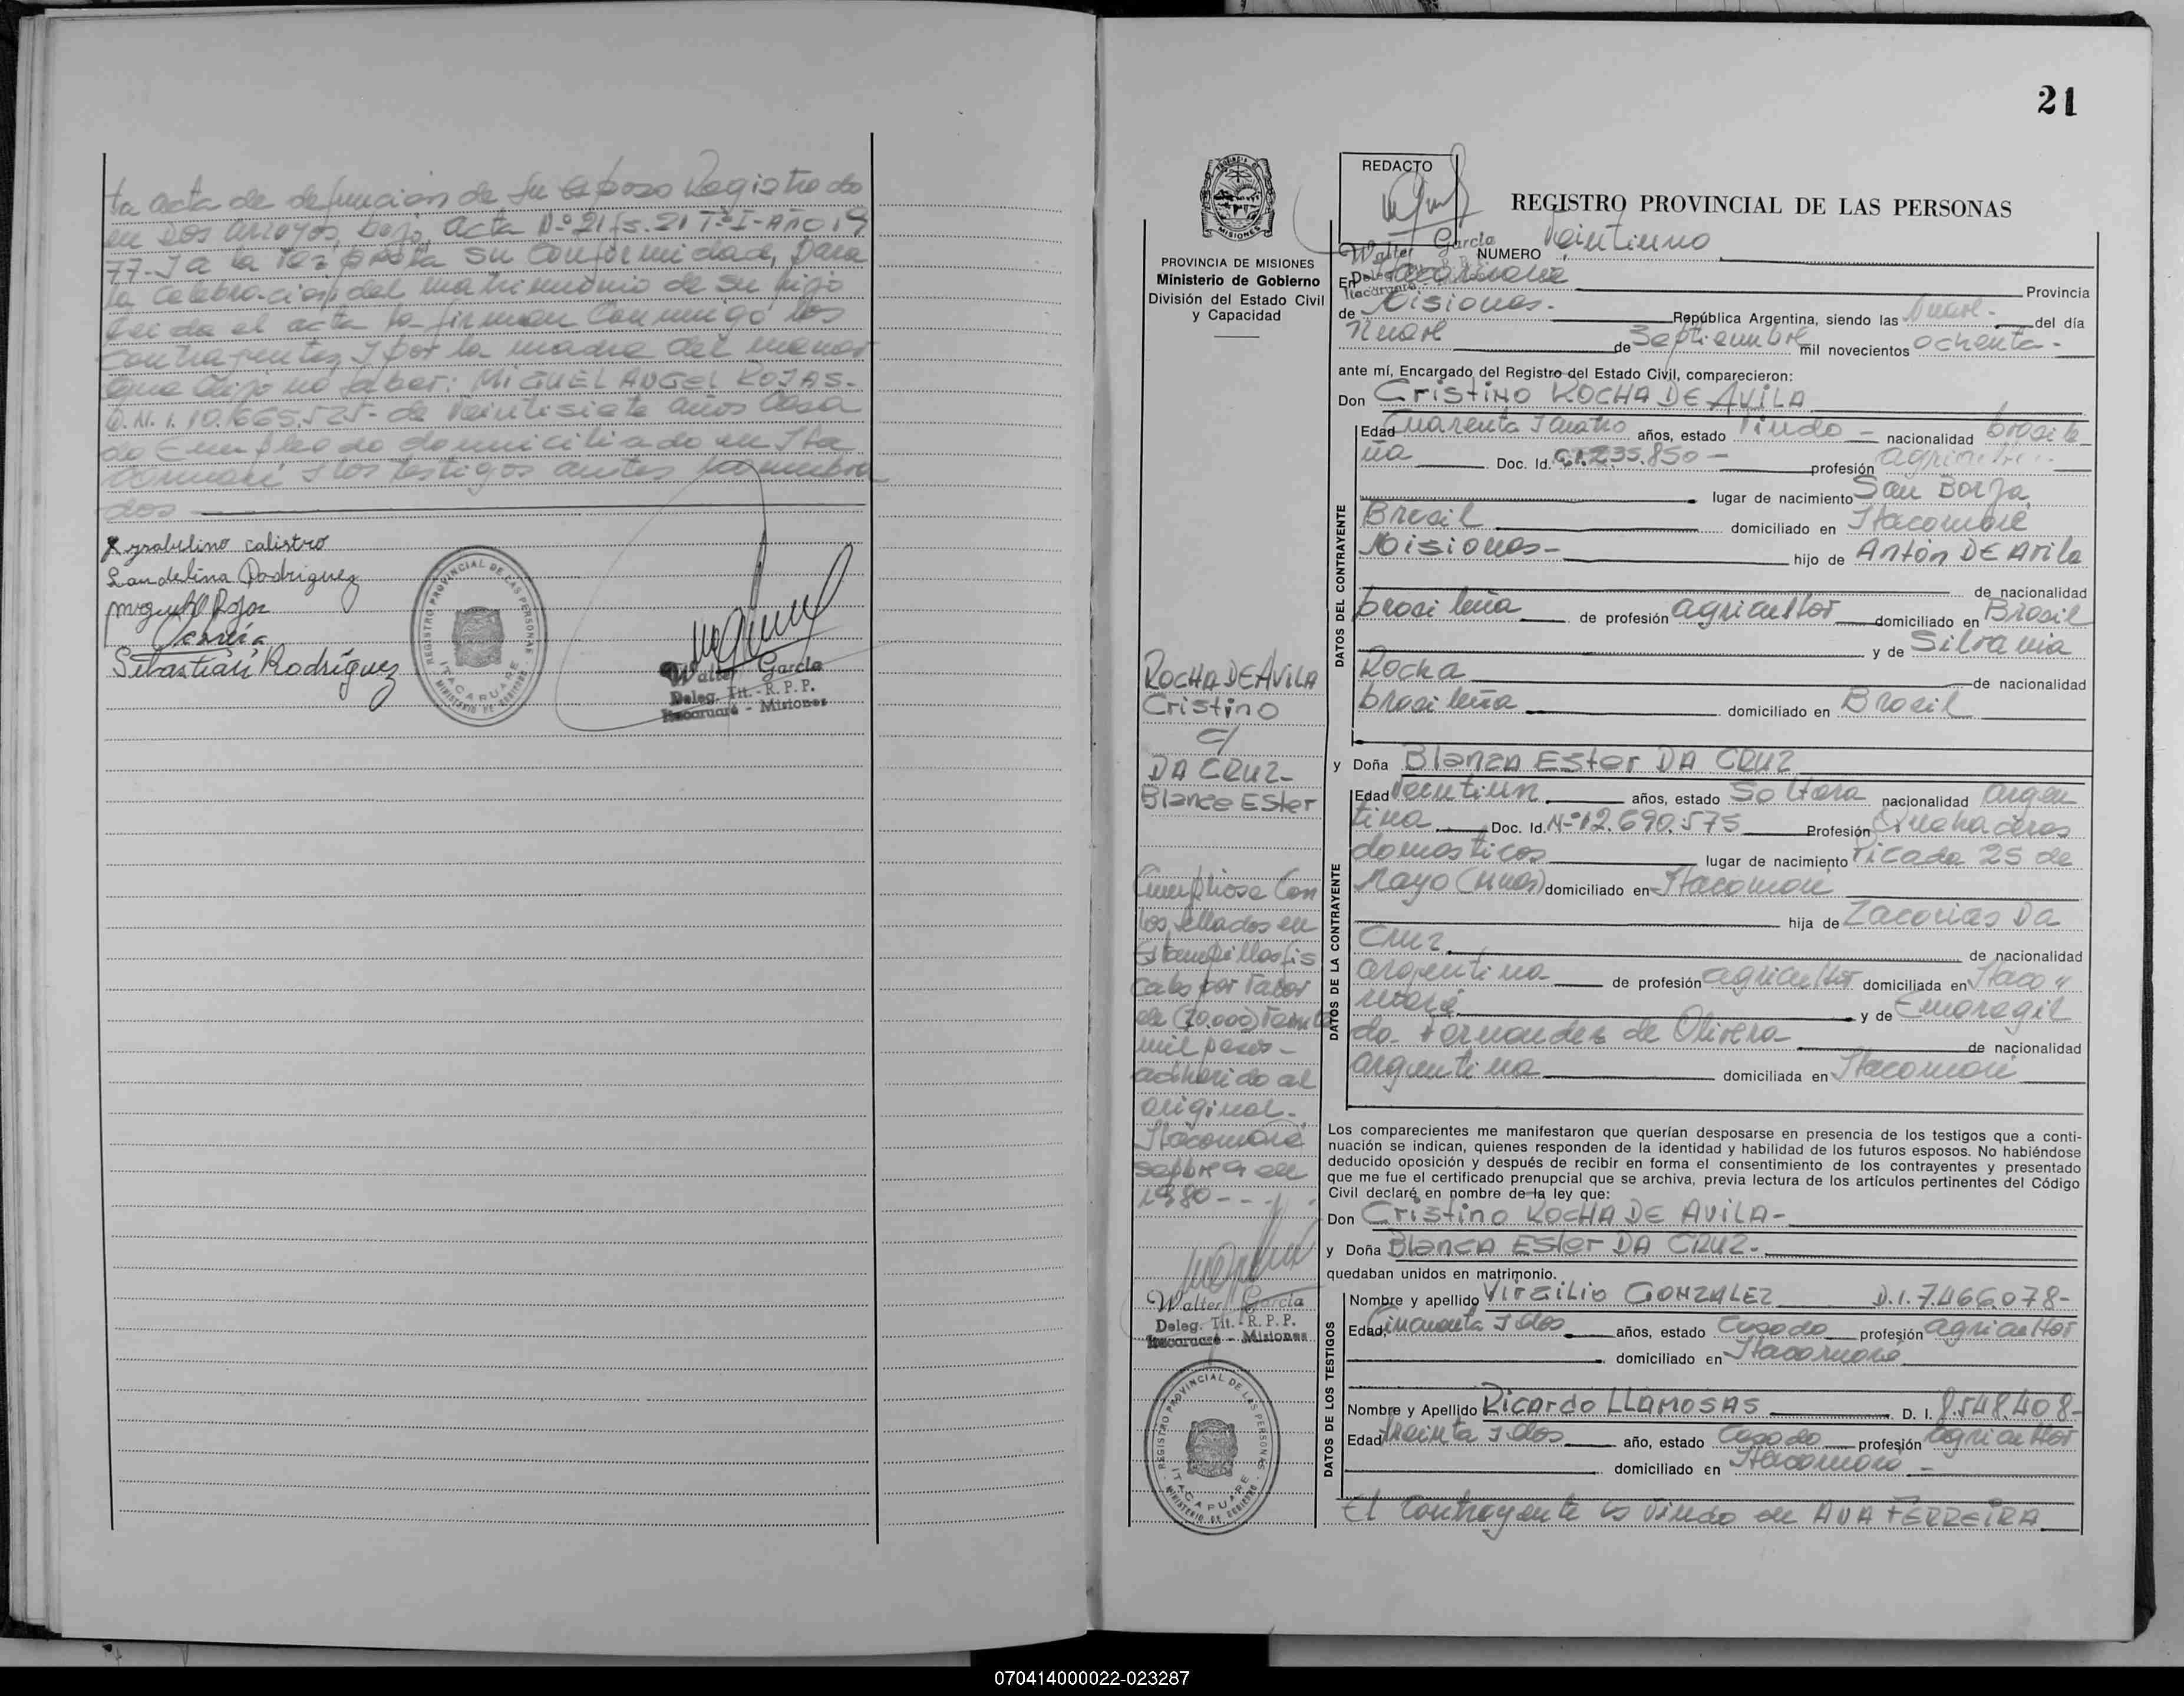 ta acta de defunción de su esposo Registrado
en Dos Arroyos, bajo, acta Nº 21 fs. 21 Tº I - AÑO 19
77- I a la vez presta su conformidad, para
la celebración del matrimonio de su hijo
leida el acta la firman conmigo los
contrayentes, I por la madre del menor
que dijo no saber: MIGUEL ANGEL ROJAS-
D.N.I. 10.665.525- de veintisiete años casa
do Empleado domiciliado en Ita
caruaré I los testigos antes nombra
dos
ysabelino calistro
Landelina Rodriguez
Miguel A Rojas
Sebastián Rodríguez
REGISTRO PROVINCIAL DE LAS PERSONAS
ITACARUARE
MINISTERIO DE GOBIERNO
Walter García
Deleg. Tit. - R. P. P.
Itacaruaré - Misiones
21
PROVINCIA DE MISIONES
Ministerio de Gobierno
División del Estado Civil
y Capacidad
ROCHA DE AVILA
Cristino
c/
DA CRUZ-
Blanca Ester
Cumpliose Con
los sellados en
Estampillas fis
cales por Valor
de (70.000) Setenta
mil pesos-
adherido al
original-
Itacaruaré
sepbre 9 de
1980---
Walter García
Deleg. Tit. - R. P. P.
Itacaruaré - Misiones
REGISTRO PROVINCIAL DE LAS PERSONAS
ITACARUARE
MINISTERIO DE GOBIERNO
REDACTO
Walter García
REGISTRO PROVINCIAL DE LAS PERSONAS
NUMERO Veintiuno
En Itacaruaré Provincia
de Misiones- República Argentina, siendo las nueve- del día
nueve de Septiembre mil novecientos ochenta-
ante mí, Encargado del Registro del Estado Civil, comparecieron:
Don Cristino ROCHA DE AVILA
DATOS DEL CONTRAYENTE
Edad Cuarenta I Cuatro años, estado Viudo - nacionalidad brasile
ña Doc. Id. C.I. 235.850 - profesión agricultor
lugar de nacimiento San Borja,
Brasil domiciliado en Itacaruaré
Misiones- hijo de Antón DE Avila
de nacionalidad
brasileña de profesión agricultor domiciliado en Brasil
y de Silvania
Rocha de nacionalidad
brasileña domiciliado en Brasil
y Doña Blanca Ester DA CRUZ
DATOS DE LA CONTRAYENTE
Edad Veintiun años, estado Soltera nacionalidad argen
tina Doc. Id. Nº 12.690.575 Profesión Quehaceres
domesticos lugar de nacimiento Picada 25 de
Mayo (Mnes) domiciliado en Itacaruaré
hija de Zacarias Da
Cruz de nacionalidad
argentina de profesión agricultor domiciliada en Itaca
ruaré y de Emaregil
da Fernandez de Olivera de nacionalidad
argentina domiciliada en Itacaruaré
Los comparecientes me manifestaron que querían desposarse en presencia de los testigos que a conti-
nuación se indican, quienes responden de la identidad y habilidad de los futuros esposos. No habiéndose
deducido oposición y después de recibir en forma el consentimiento de los contrayentes y presentado
que me fue el certificado prenupcial que se archiva, previa lectura de los artículos pertinentes del Código
Civil declaré en nombre de la ley que:
Don Cristino ROCHA DE AVILA-
y Doña Blanca Ester DA CRUZ-
quedaban unidos en matrimonio.
DATOS DE LOS TESTIGOS
Nombre y apellido Virgilio GONZALEZ D.I. 7.466.078-
Edad, Cincuenta I dos años, estado Casado profesión agricultor
domiciliado en Itacaruaré
Nombre y Apellido Ricardo LLAMOSAS D. I. 8.548.408-
Edad treinta I dos año, estado Casado profesión agricultor
domiciliado en Itacaruaré -
El Contrayente es viudo de ANA FERREIRA
070414000022-023287